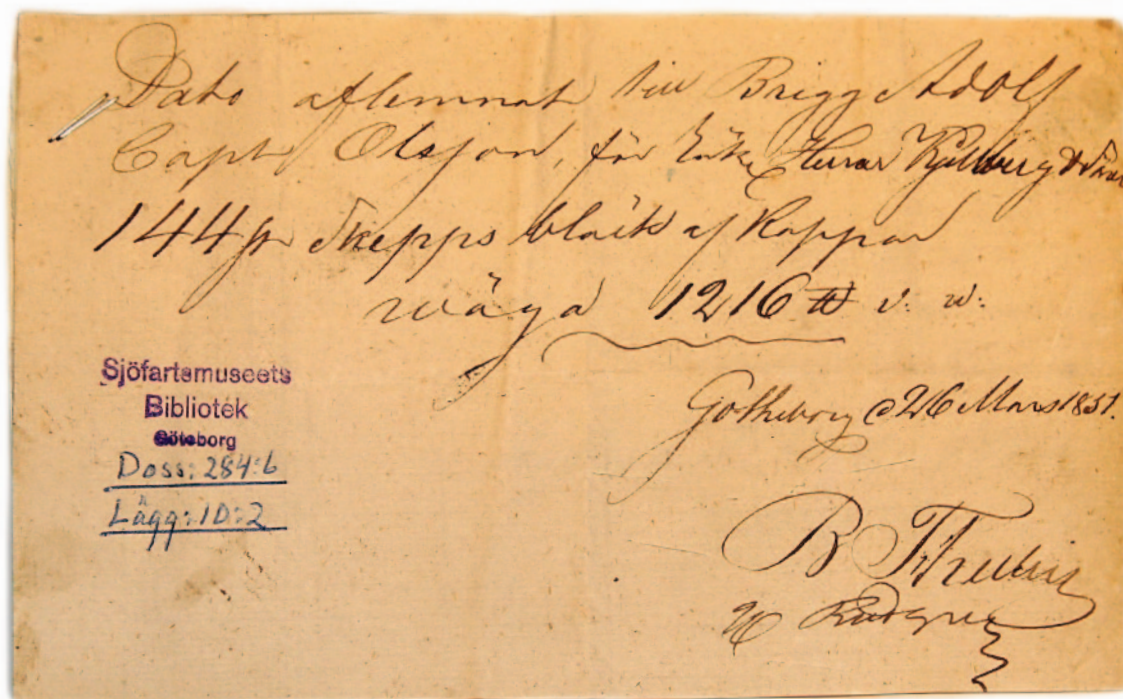 Dato aflemnat till Brigg Adolf
Capt Olsson, för Räk Herrar Kjellberg &
144 st Skepps bläck af Koppar
wäga 1216 ℔ v. w:
Götheborg d 26 Mars 1851.
Sjöfartsmuseets
Bibliotek
Göteborg
Doss: 284:6
Lägg: 1D:2
B